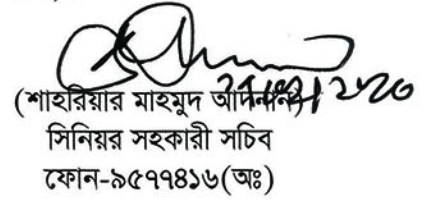 (শাহরিয়ার মাহমুদ আদনান)
সিনিয়র সহকারী সচিব
ফোন-৯৫৭৭৪১৬(অঃ)